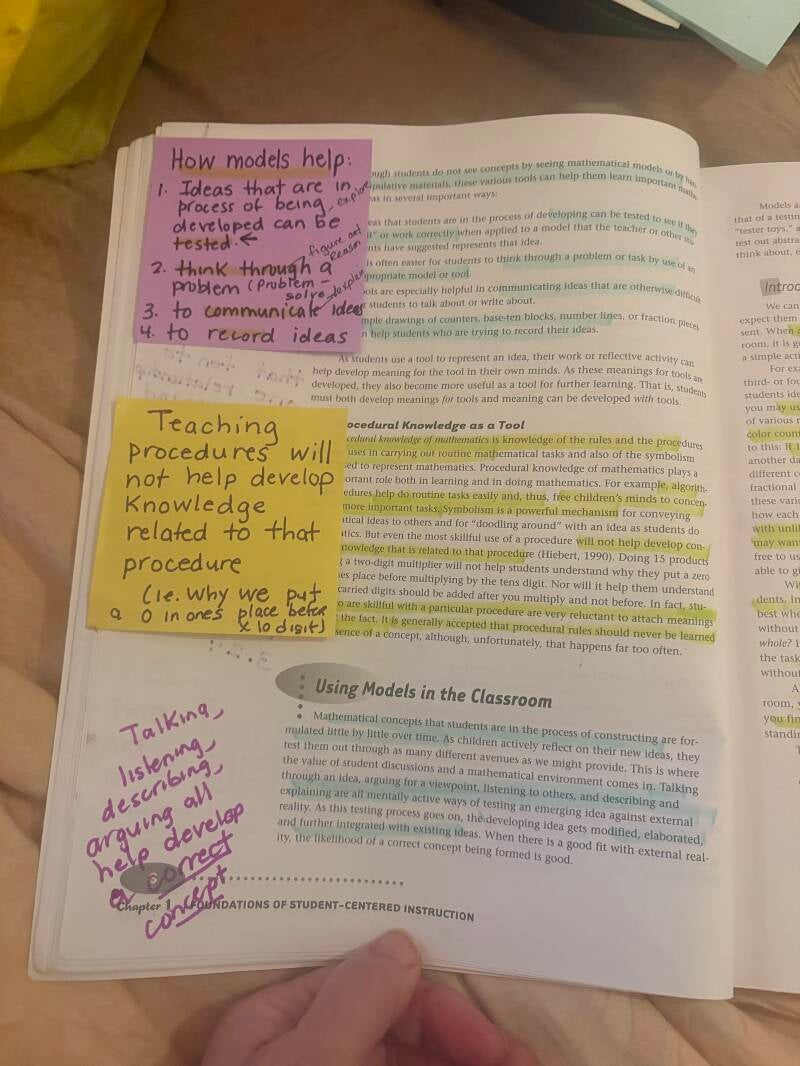 How models help:
1. Ideas that are in
process of being explore
developed can be
tested. ←
figure out
reason
2. think through a
problem (problem-
solve explain
3. to communicate ideas
4. to record ideas
ough students do not see concepts by seeing mathematical models or by
ipulative materials, these various tools can help them learn important
as in several important ways:
eas that students are in the process of developing can be tested to see if they
it" or work correctly when applied to a model that the teacher or other
nts have suggested represents that idea.
is often easier for students to think through a problem or task by use of an
propriate model or tool.
ools are especially helpful in communicating ideas that are otherwise difficult
r students to talk about or write about.
mple drawings of counters, base-ten blocks, number lines, or fraction pieces
n help students who are trying to record their ideas.
As students use a tool to represent an idea, their work or reflective activity can
help develop meaning for the tool in their own minds. As these meanings for tools are
developed, they also become more useful as a tool for further learning. That is, students
must both develop meanings for tools and meaning can be developed with tools.
Teaching
procedures will
not help develop
knowledge
related to that
procedure
(ie. why we put
a 0 in ones place before
x 10 digit)
ocedural Knowledge as a Tool
cedural knowledge of mathematics is knowledge of the rules and the procedures
uses in carrying out routine mathematical tasks and also of the symbolism
ed to represent mathematics. Procedural knowledge of mathematics plays a
ortant role both in learning and in doing mathematics. For example, algorith-
edures help do routine tasks easily and, thus, free children's minds to concen-
more important tasks. Symbolism is a powerful mechanism for conveying
tical ideas to others and for "doodling around" with an idea as students do
tics. But even the most skillful use of a procedure will not help develop con-
nowledge that is related to that procedure (Hiebert, 1990). Doing 15 products
g a two-digit multiplier will not help students understand why they put a zero
es place before multiplying by the tens digit. Nor will it help them understand
carried digits should be added after you multiply and not before. In fact, stu-
o are skillful with a particular procedure are very reluctant to attach meanings
the fact. It is generally accepted that procedural rules should never be learned
sence of a concept, although, unfortunately, that happens far too often.
Using Models in the Classroom
Mathematical concepts that students are in the process of constructing are for-
mulated little by little over time. As children actively reflect on their new ideas, they
test them out through as many different avenues as we might provide. This is where
the value of student discussions and a mathematical environment comes in. Talking
through an idea, arguing for a viewpoint, listening to others, and describing and
explaining are all mentally active ways of testing an emerging idea against external
reality. As this testing process goes on, the developing idea gets modified, elaborated,
and further integrated with existing ideas. When there is a good fit with external real-
ity, the likelihood of a correct concept being formed is good.
Talking,
listening,
describing,
arguing all
help develop
a correct
concept
Chapter 1 FOUNDATIONS OF STUDENT-CENTERED INSTRUCTION
Models a
that of a testin
"tester toys," a
test out abstra
think about, e
Introd
We can
expect them
sent. When
room, it is g
a simple acti
For exa
third- or fou
students ide
you may us
of various r
color count
to this: If 1
another da
different c
fractional
these vari
how each
with unlif
may want
free to us
able to gi
Wit
dents. In
best whe
without
whole? I
the task
without
A
room, y
you fin
standin